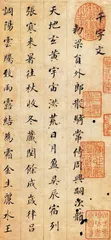 千字文
勅梁員外郎散騎常侍周興嗣次韻
天地玄黃宇宙洪荒日月盈昃辰宿列
張寒來暑往秋收冬藏閏餘成歲律呂
調陽雲騰致雨露結為霜金生麗水玉